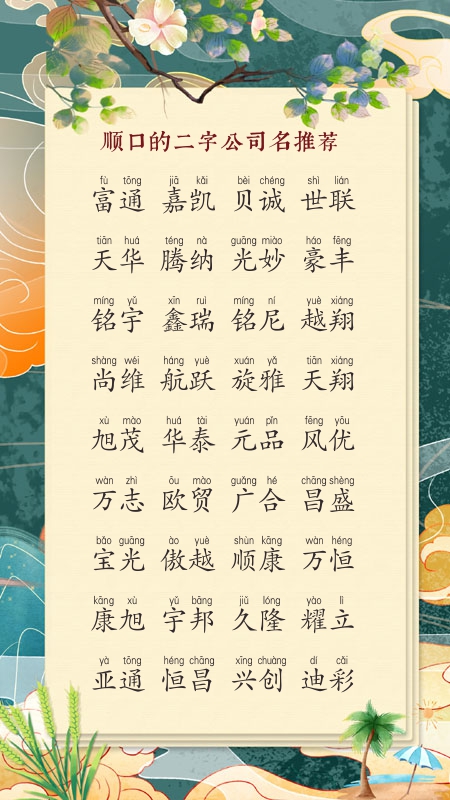 顺口的二字公司名推荐
fù tōng jiā kǎi bèi chéng shì lián
富通 嘉凯 贝诚 世联
tiān huá téng nà guāng miào háo fēng
天华 腾纳 光妙 豪丰
míng yǔ xīn ruì míng ní yuè xiáng
铭宇 鑫瑞 铭尼 越翔
shàng wéi háng yuè xuán yǎ tiān xiáng
尚维 航跃 旋雅 天翔
xù mào huá tài yuán pǐn fēng yōu
旭茂 华泰 元品 风优
wàn zhì ōu mào guǎng hé chāng shèng
万志 欧贸 广合 昌盛
bǎo guāng ào yuè shùn kāng wàn héng
宝光 傲越 顺康 万恒
kāng xù yǔ bāng jiǔ lóng yào lì
康旭 宇邦 久隆 耀立
yà tōng héng chāng xīng chuàng dí cǎi
亚通 恒昌 兴创 迪彩